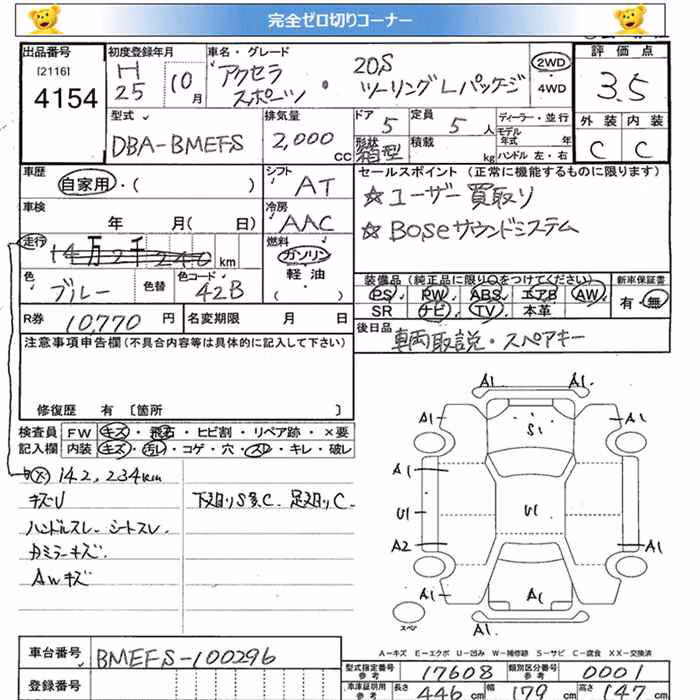 完全ゼロ切りコーナー
出品番号 初度登録年月 車名・グレード 評価点
[2116] H 25 10月 アクセラ スポーツ・20S ツーリングLパッケージ 2WD ・4WD 3.5
4154
型式 排気量 ドア 定員 ディーラー・並行 外装 内装
DBA-BMEFS 2,000 cc 5 5人 モデル年式 年 C C
形状 箱型 積載 kg ハンドル 左・右
車歴 シフト セールスポイント (正常に機能するものに限ります)
自家用・( ) AT ☆ユーザー買取り
車検 冷房
年 月( 日) AAC ☆Boseサウンドシステム
走行 燃料
14万2千240 km ガソリン
色 色替 色コード 軽油 装備品(純正品に限り○をつけてください) 新車保証書
ブルー 42B ( ) PS PW ABS エアB AW 有・無
SR ナビ TV 本革
R券 10,770 円 名変期限 月 日 後日品
車両取説・スペアキー
注意事項申告欄(不具合内容等は具体的に記入して下さい)
修復歴 有 〔箇所 〕
検査員 FW キズ・飛石・ヒビ割・リペア跡・×要
記入欄 内装 キズ・汚レ・コゲ・穴・スレ・キレ・破レ
メ 142,234km
キズU 下廻りS多、C、足廻りC
ハンドルスレ、シートスレ
カミラーキズ
AWキズ
A1 A1
A1 S1 A1
A1 A1
U1 U1 U1
A2 A1
A1 A1 A1
スペア A1
A-キズ E-エクボ U-凹み W-補修跡 S-サビ C-腐食 XX-交換済
車台番号 BMEFS-100296
登録番号
型式指定番号 参考 17608 類別区分番号 参考 0001
車庫証明用 参考 長さ 446 cm 幅 179 cm 高さ 147 cm